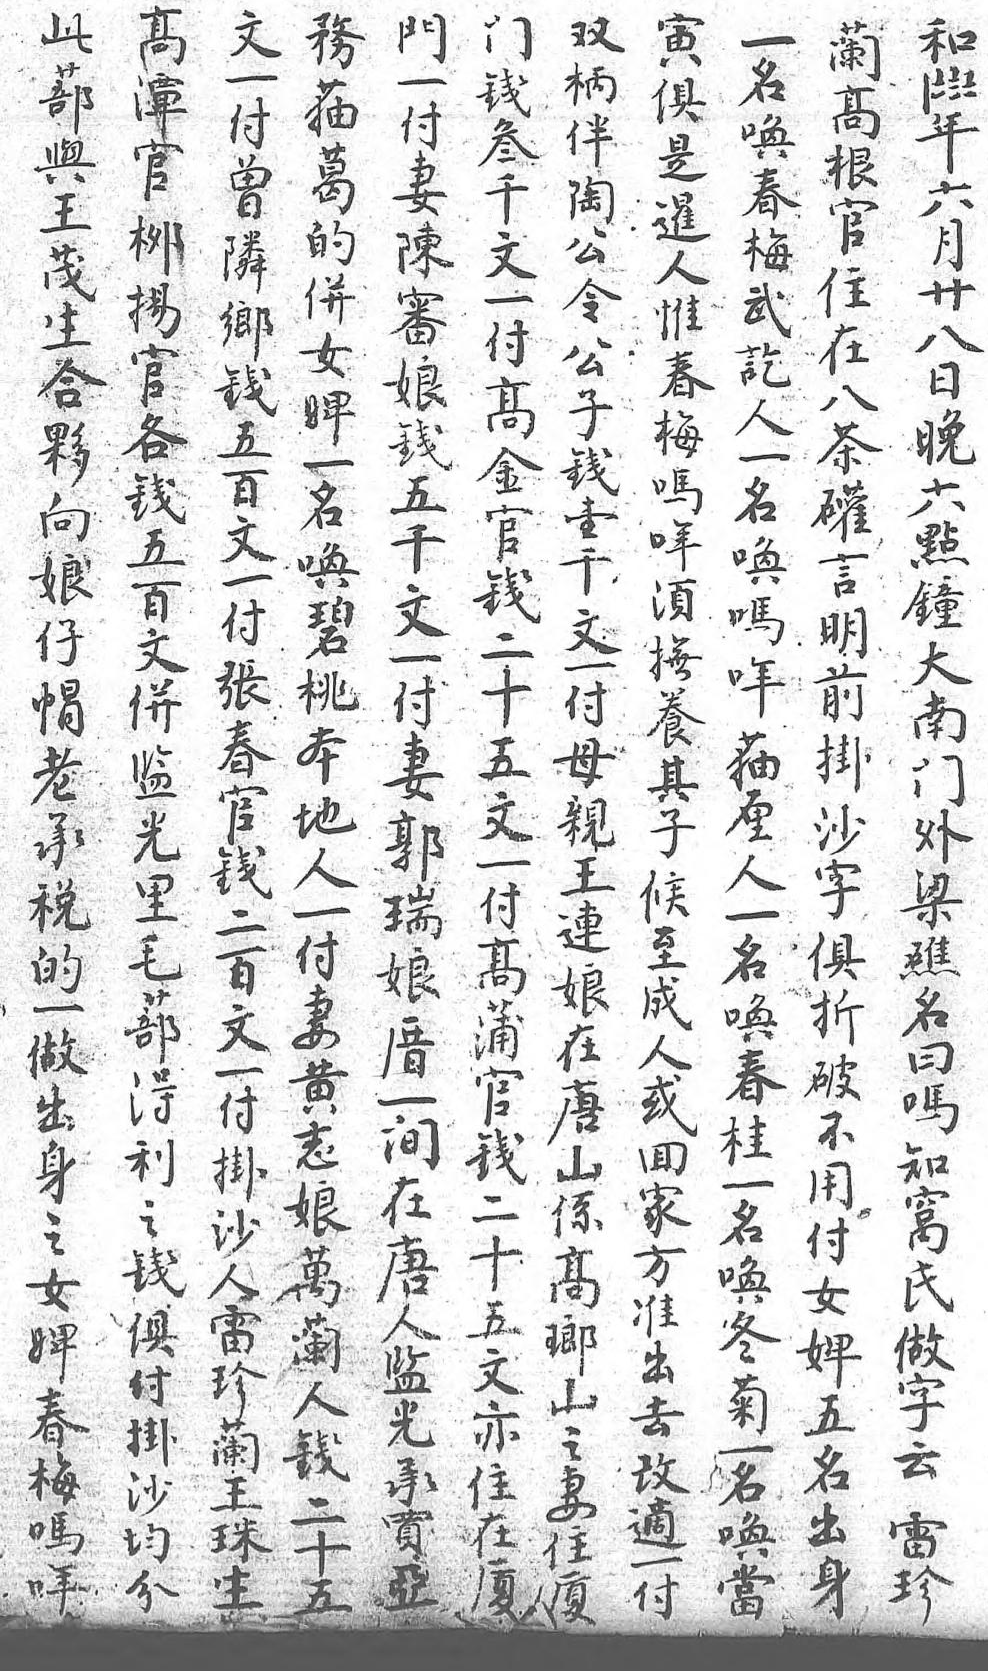 和𪜀年六月廿八日晚六點鐘大南门外梁礁名曰嗎知窩氏做字云雷珍
蘭髙根官住在八茶礶言明前掛沙字俱折破不用付女婢五名出身
一名喚春梅武訖人一名喚嗎哖猫厘人一名喚春桂一名喚冬菊一名喚當
寅俱是暹人惟春梅嗎哖須撫養其子候至成人或囬家方准出去故適一付
双柄伴陶公令公子錢壹千文一付母親王連娘在唐山係髙瑯山之妻住厦
门錢叁千文一付髙金官錢二十五文一付髙蒲官錢二十五文亦住在厦
門一付妻陳審娘錢五千文一付妻郭瑞娘厝一间在唐人監光承買亞
務猫葛的併女婢一名喚碧桃本地人一付妻黄志娘萬蘭人錢二十五
文一付曾隣鄉錢五百文一付張春官錢二百文一付掛沙人雷珍蘭王珠生
髙潭官栁揚官各錢五百文併监光里毛蔀淂利之錢俱付掛沙均分
此蔀與王茂生合夥向娘仔帽老承税的一做出身之女婢春梅嗎哖